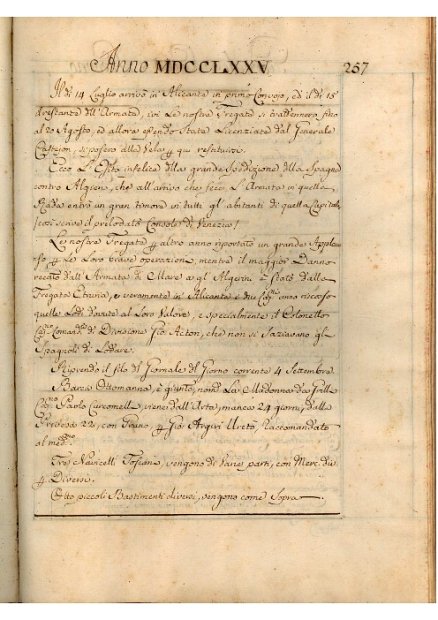 Anno MDCCLXXV 257
Il dì 14 Luglio arrivò in Alicante il primo Convojo, ed il dì 15
il restante dell'Armata, ivi le nostre Fregate si trattennero fino
al 20 Agosto, ed allora essendo state Licenziate dal Generale
Castejon, si posero alla Vela per qui restituirsi.
Ecco L'Esito infelice della grande Spedizione della Spagna
contro Algieri, che all'arrivo che fece L'Armata in quella
Rada entrò un gran timore in tutti gl'abitanti di quella Capitale,
così scrive il prelodato Console di Venezia
Le nostre Fregate per altro anno riportato un grande Applau
so per le Loro brave operazioni, mentre il maggior Danno
recato dall'Armata di Mare a gl'Algerini è stato dalla
Fregata Etruria, e veramente in Alicante i due anno riscosso
quelle Lodi dovute al Loro Valore, e specialmente il Colonnello
di Divisione Gio Acton, che non si saziavano gli
Spagnoli di Lodare.
Riprendo il filo del Giornale del Giorno corrente 4 Settembre
Barca Ottomanna, è giunta, nom La Madonna
Paolo viene dall'Arta, manca 24 giorni, dalla
22, con Grano, per Gio Raccomandato
al
Tre Navicelli Toscani, vengono di varie parti, con Merc. div
per Diversi.
Otto piccoli Bastimenti diversi, vengono come Sopra